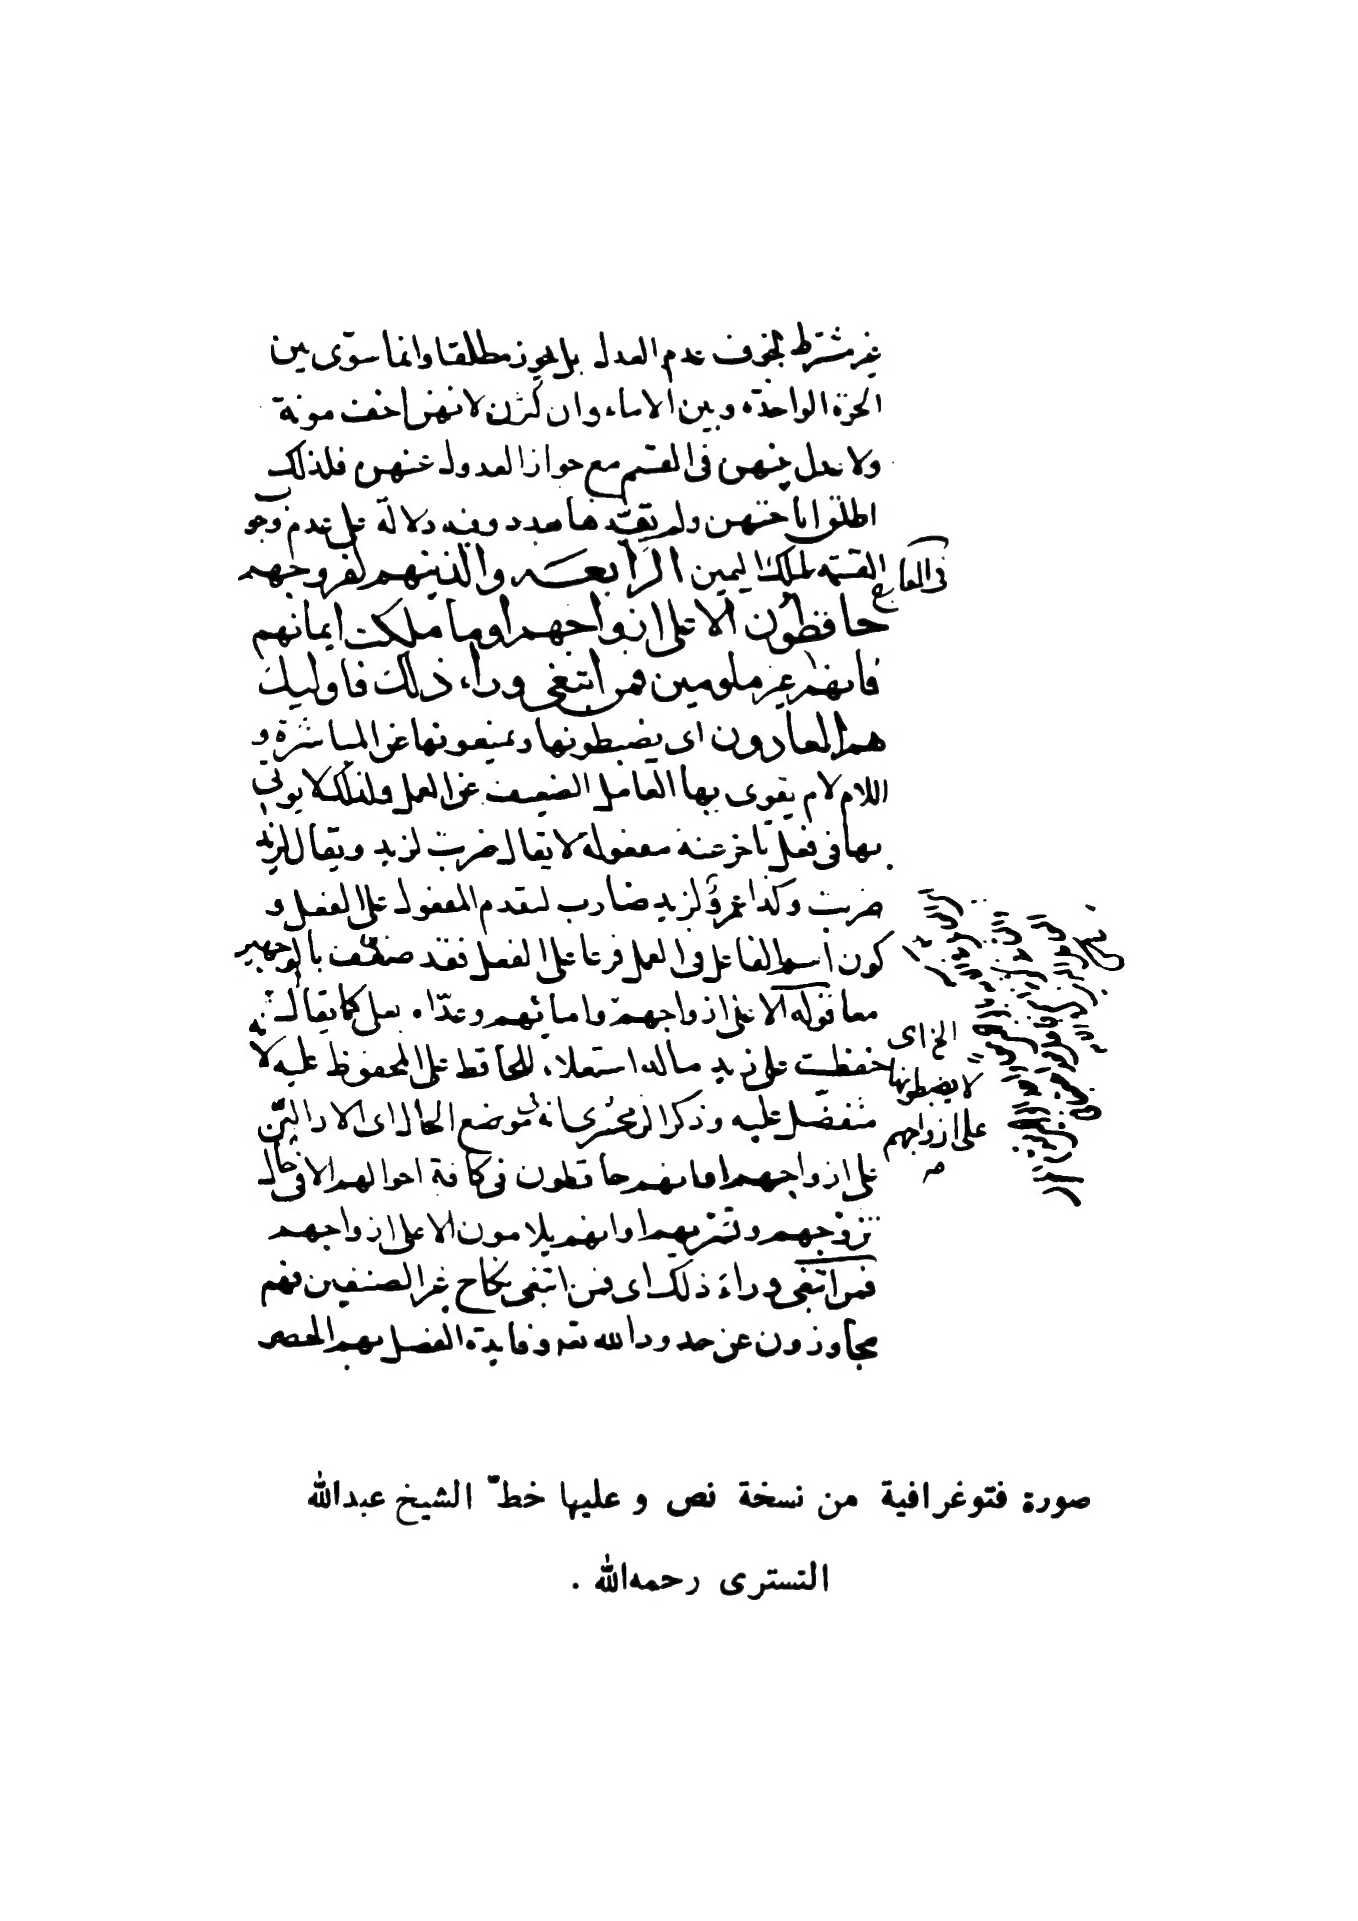 غير مشترط بخوف عدم العدل بل يجوز مطلقا وانما سوّى بين
الحرّة الواحدة وبين الاماء وان كثرن لانهنّ اخف مونة
ولا عدل بينهن فى القسم مع جواز العدول عنهن فلذلك
اطلق اباحتهن ولم يقيّدها بعدد وفيه دلالة على عدم وجوب
القسمة لملك اليمين الرابعة والذينهم لفروجهم
حافظون الا على ازواجهم او ما ملكت ايمانهم
فانهم غير ملومين فمن ابتغى وراء ذلك فاوليك
هم العادون اى يضبطونها ويمنعونها عن المباشرة و
اللام لام يقوى بها العامل الضعيف عن العمل ولذلك لا يوتى
بها فى فعل تاخر عنه مفعوله لا يقال ضربت لزيد ويقال لزيد
ضربت وكذا عمرو لزيد ضارب لتقدم المفعول على الفعل و
كون اسم الفاعل فى العمل فرعا على الفعل فقد ضعف بالوجهين
معا قوله الا على ازواجهم وامائهم وعدّاه بعلى كما يقال
حفظت على زيد ماله استعلاء للحافظ على المحفوظ عليه لانه
متفضّل عليه وذكر الزمخشرى انه فى موضع الحال اى الا والين
على ازواجهم او انهم حافظون فى كافة احوالهم الا فى حال
تزوجهم وتسريهم او انهم يلامون الا على ازواجهم
فمن ابتغى وراء ذلك اى فمن ابتغى نكاح غير الصنفين فهم
متجاوزون عن حدود الله وفايدة الفصل بهم الحصر
اى
لا يضبطونها
على ازواجهم
صورة فتوغرافية من نسخة نص و عليها خطّ الشيخ عبدالله
التسترى رحمه‌الله .